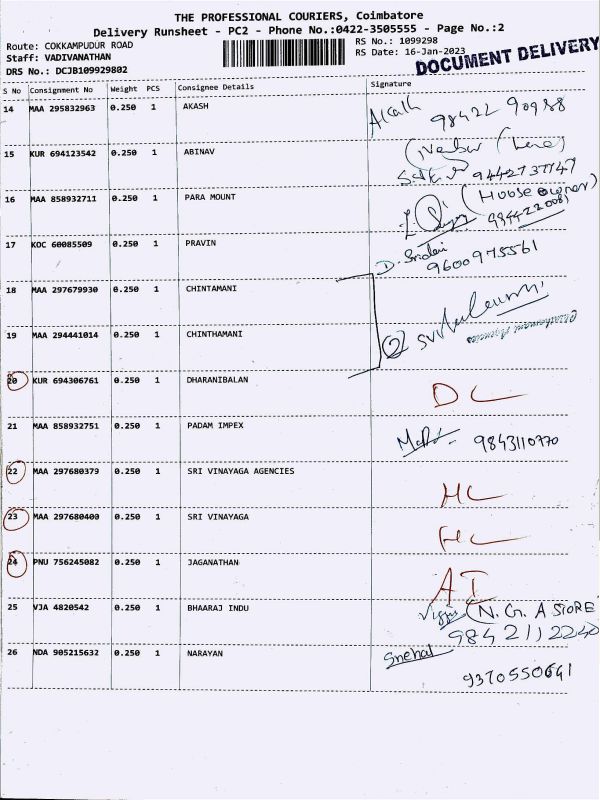 THE PROFESSIONAL COURIERS, Coimbatore
Delivery Runsheet - PC2 - Phone No.:0422-3505555 - Page No.:2
Route: COKKAMPUDUR ROAD RS No.: 1099298
Staff: VADIVANATHAN RS Date: 16-Jan-2023
DRS No.: DCJB109929802 DOCUMENT DELIVERY
S No Consignment No Weight PCS Consignee Details Signature
14 MAA 295832963 0.250 1 AKASH Akash 98422 90988
15 KUR 694123542 0.250 1 ABINAV 9442737147
16 MAA 858932711 0.250 1 PARA MOUNT (House owner)
17 KOC 60085509 0.250 1 PRAVIN D. Sridevi 9600975561
18 MAA 297679930 0.250 1 CHINTAMANI
19 MAA 294441014 0.250 1 CHINTHAMANI 2 Chinthamani Agencies
20 KUR 694306761 0.250 1 DHARANIBALAN DC
21 MAA 858932751 0.250 1 PADAM IMPEX 9843110770
22 MAA 297680379 0.250 1 SRI VINAYAGA AGENCIES HC
23 MAA 297680400 0.250 1 SRI VINAYAGA HC
24 PNU 756245082 0.250 1 JAGANATHAN AI
25 VJA 4820542 0.250 1 BHAARAJ INDU N. G. A STORE
9842112240
26 NDA 905215632 0.250 1 NARAYAN Snehal
9370550641